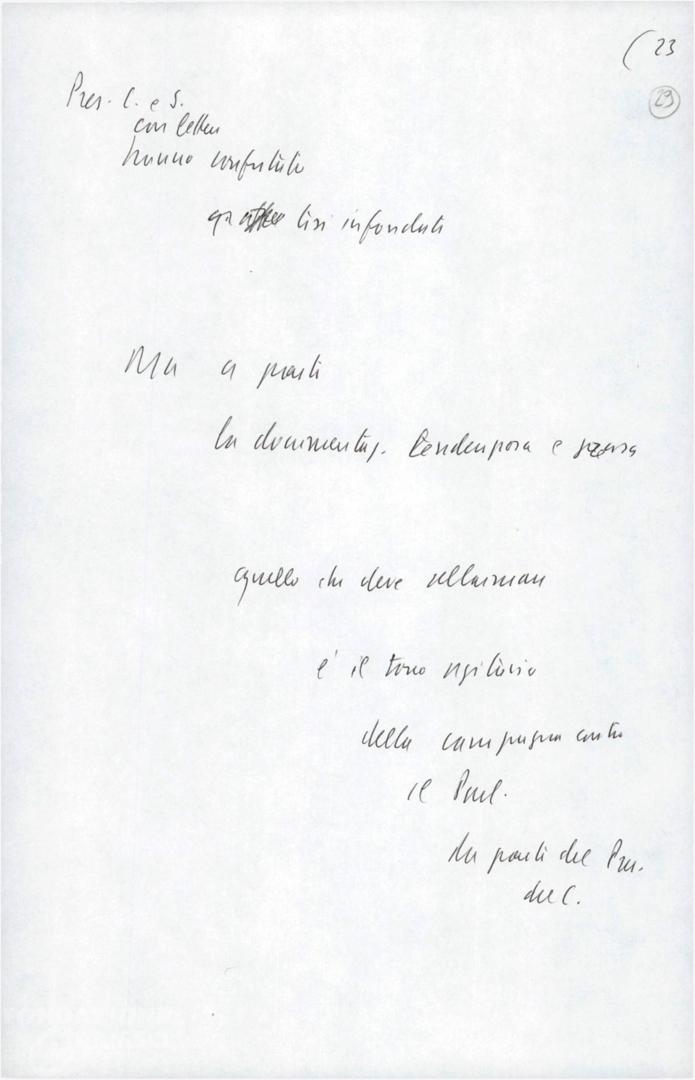 ( 23
23
Pres. C. e S.
con lettera
hanno confutato
tesi infondate
Ma a parte
la documentaz. tendenziosa e
quello che deve allarmare
e' il tono agitatorio
della campagna contro
il Parl.
da parte del Pres.
del C.